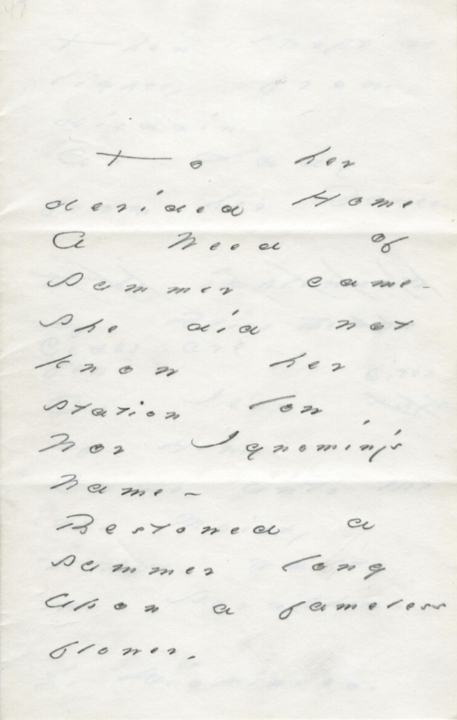 To her
derided Home
A Weed of
Summer came -
She did not
know her
station low
Nor Ignominy's
Name -
Bestowed a
summer long
Upon a fameless
flower.